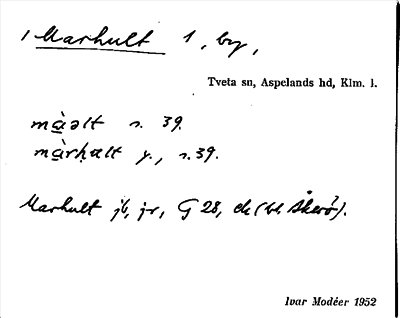 Marhult 1, by,
Tveta sn, Aspelands hd, Klm. l.
mà̱əlt n. 39.
mà̱rhalt y., n. 39.
Marhult jb, jr, G 28, ek (bl. Åkerö?).
Ivar Modéer 1952